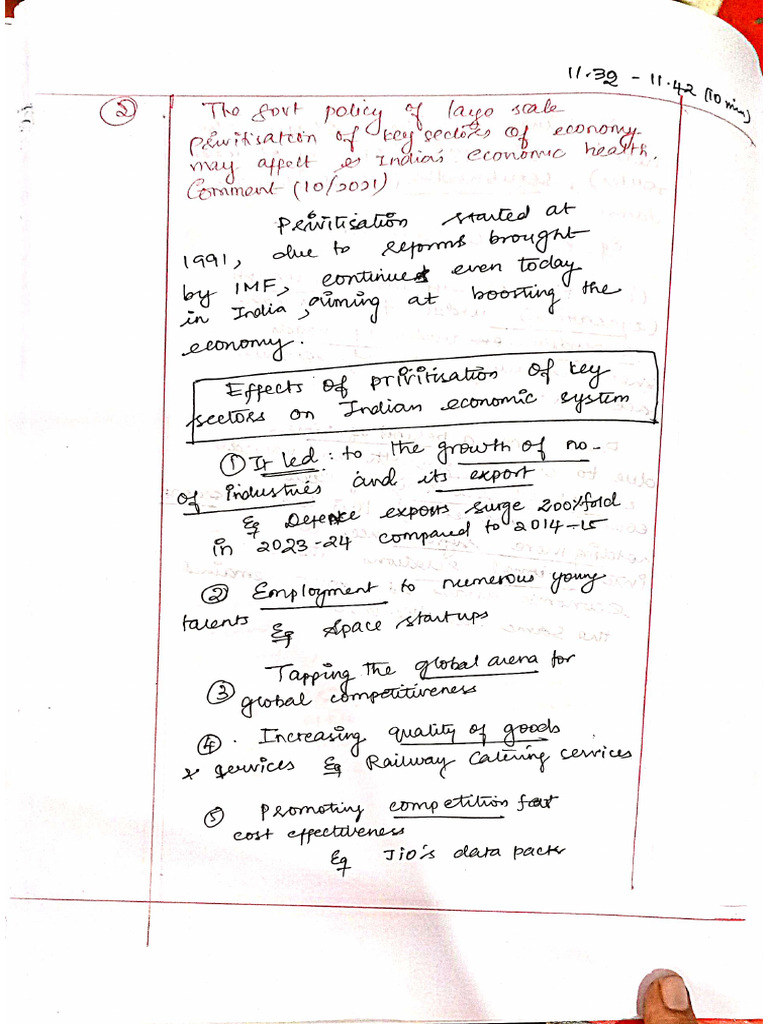 11.32 - 11.42 (10 min)
② The Govt policy of large scale
privitisation of key sectors of economy
may affect India's economic health.
Comment (10/2021)
Privitisation started at
1991, due to reforms brought
by IMF, continues even today
in India, aiming at boosting the
economy.
Effects of privitisation of key
sectors on Indian economic system
① It led: to the growth of no-
of industries and its export
Eg Defence exports surge 200% fold
in 2023-24 compared to 2014-15
② Employment to numerous young
talents Eg Space startups
Tapping the global arena for
③ global competitiveness
④ . Increasing quality of goods
& services Eg Railway Catering services
⑤ Promoting competition for
cost effectiveness
Eg Jio's data packs